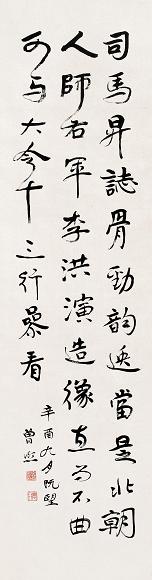 司馬昇誌骨勁韵逸當是北朝
人師右軍李洪演造像直而不曲
可与大令十三行叅看
辛酉九月既望
曾熙